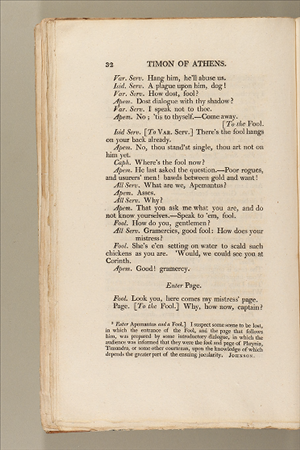 32 TIMON OF ATHENS.
Var. Serv. Hang him, he'll abuse us.
Isid. Serv. A plague upon him, dog!
Var. Serv. How dost, fool?
Apem. Dost dialogue with thy shadow?
Var. Serv. I speak not to thee.
Apem. No; 'tis to thyself.—Come away.
[To the Fool.
Isid Serv. [To Var. Serv.] There's the fool hangs
on your back already.
Apem. No, thou stand'st single, thou art not on
him yet.
Caph. Where's the fool now?
Apem. He last asked the question.—Poor rogues,
and usurers' men! bawds between gold and want!
All Serv. What are we, Apemantus?
Apem. Asses.
All Serv. Why?
Apem. That you ask me what you are, and do
not know yourselves.—Speak to 'em, fool.
Fool. How do you, gentlemen?
All Serv. Gramercies, good fool: How does your
mistress?
Fool. She's e'en setting on water to scald such
chickens as you are. 'Would, we could see you at
Corinth.
Apem. Good! gramercy.
Enter Page.
Fool. Look you, here comes my mistress' page.
Page. [To the Fool.] Why, how now, captain?
* Enter Apemantus and a Fool.] I suspect some scene to be lost,
in which the entrance of the Fool, and the page that follows
him, was prepared by some introductory dialogue, in which the
audience was informed that they were the fool and page of Phrynia,
Timandra, or some other courtesan, upon the knowledge of which
depends the greater part of the ensuing jocularity. JOHNSON.